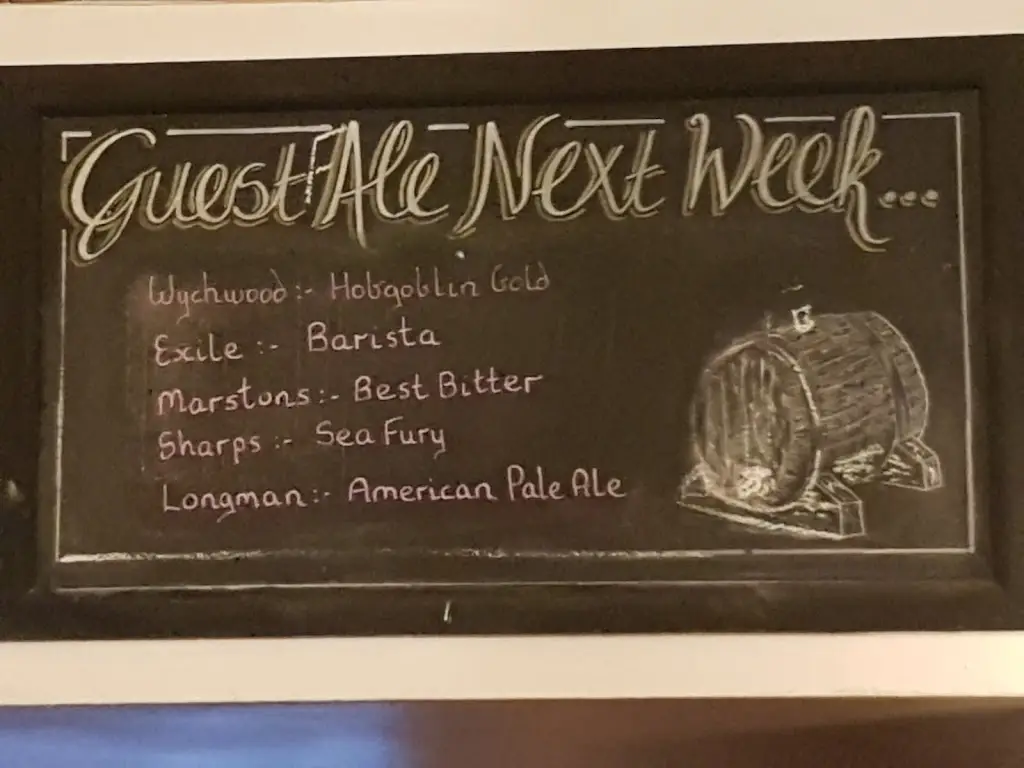 Guest Ale Next Week...
Wychwood :- Hobgoblin Gold
Exile :- Barista
Marstons :- Best Bitter
Sharps :- Sea Fury
Longman :- American Pale Ale